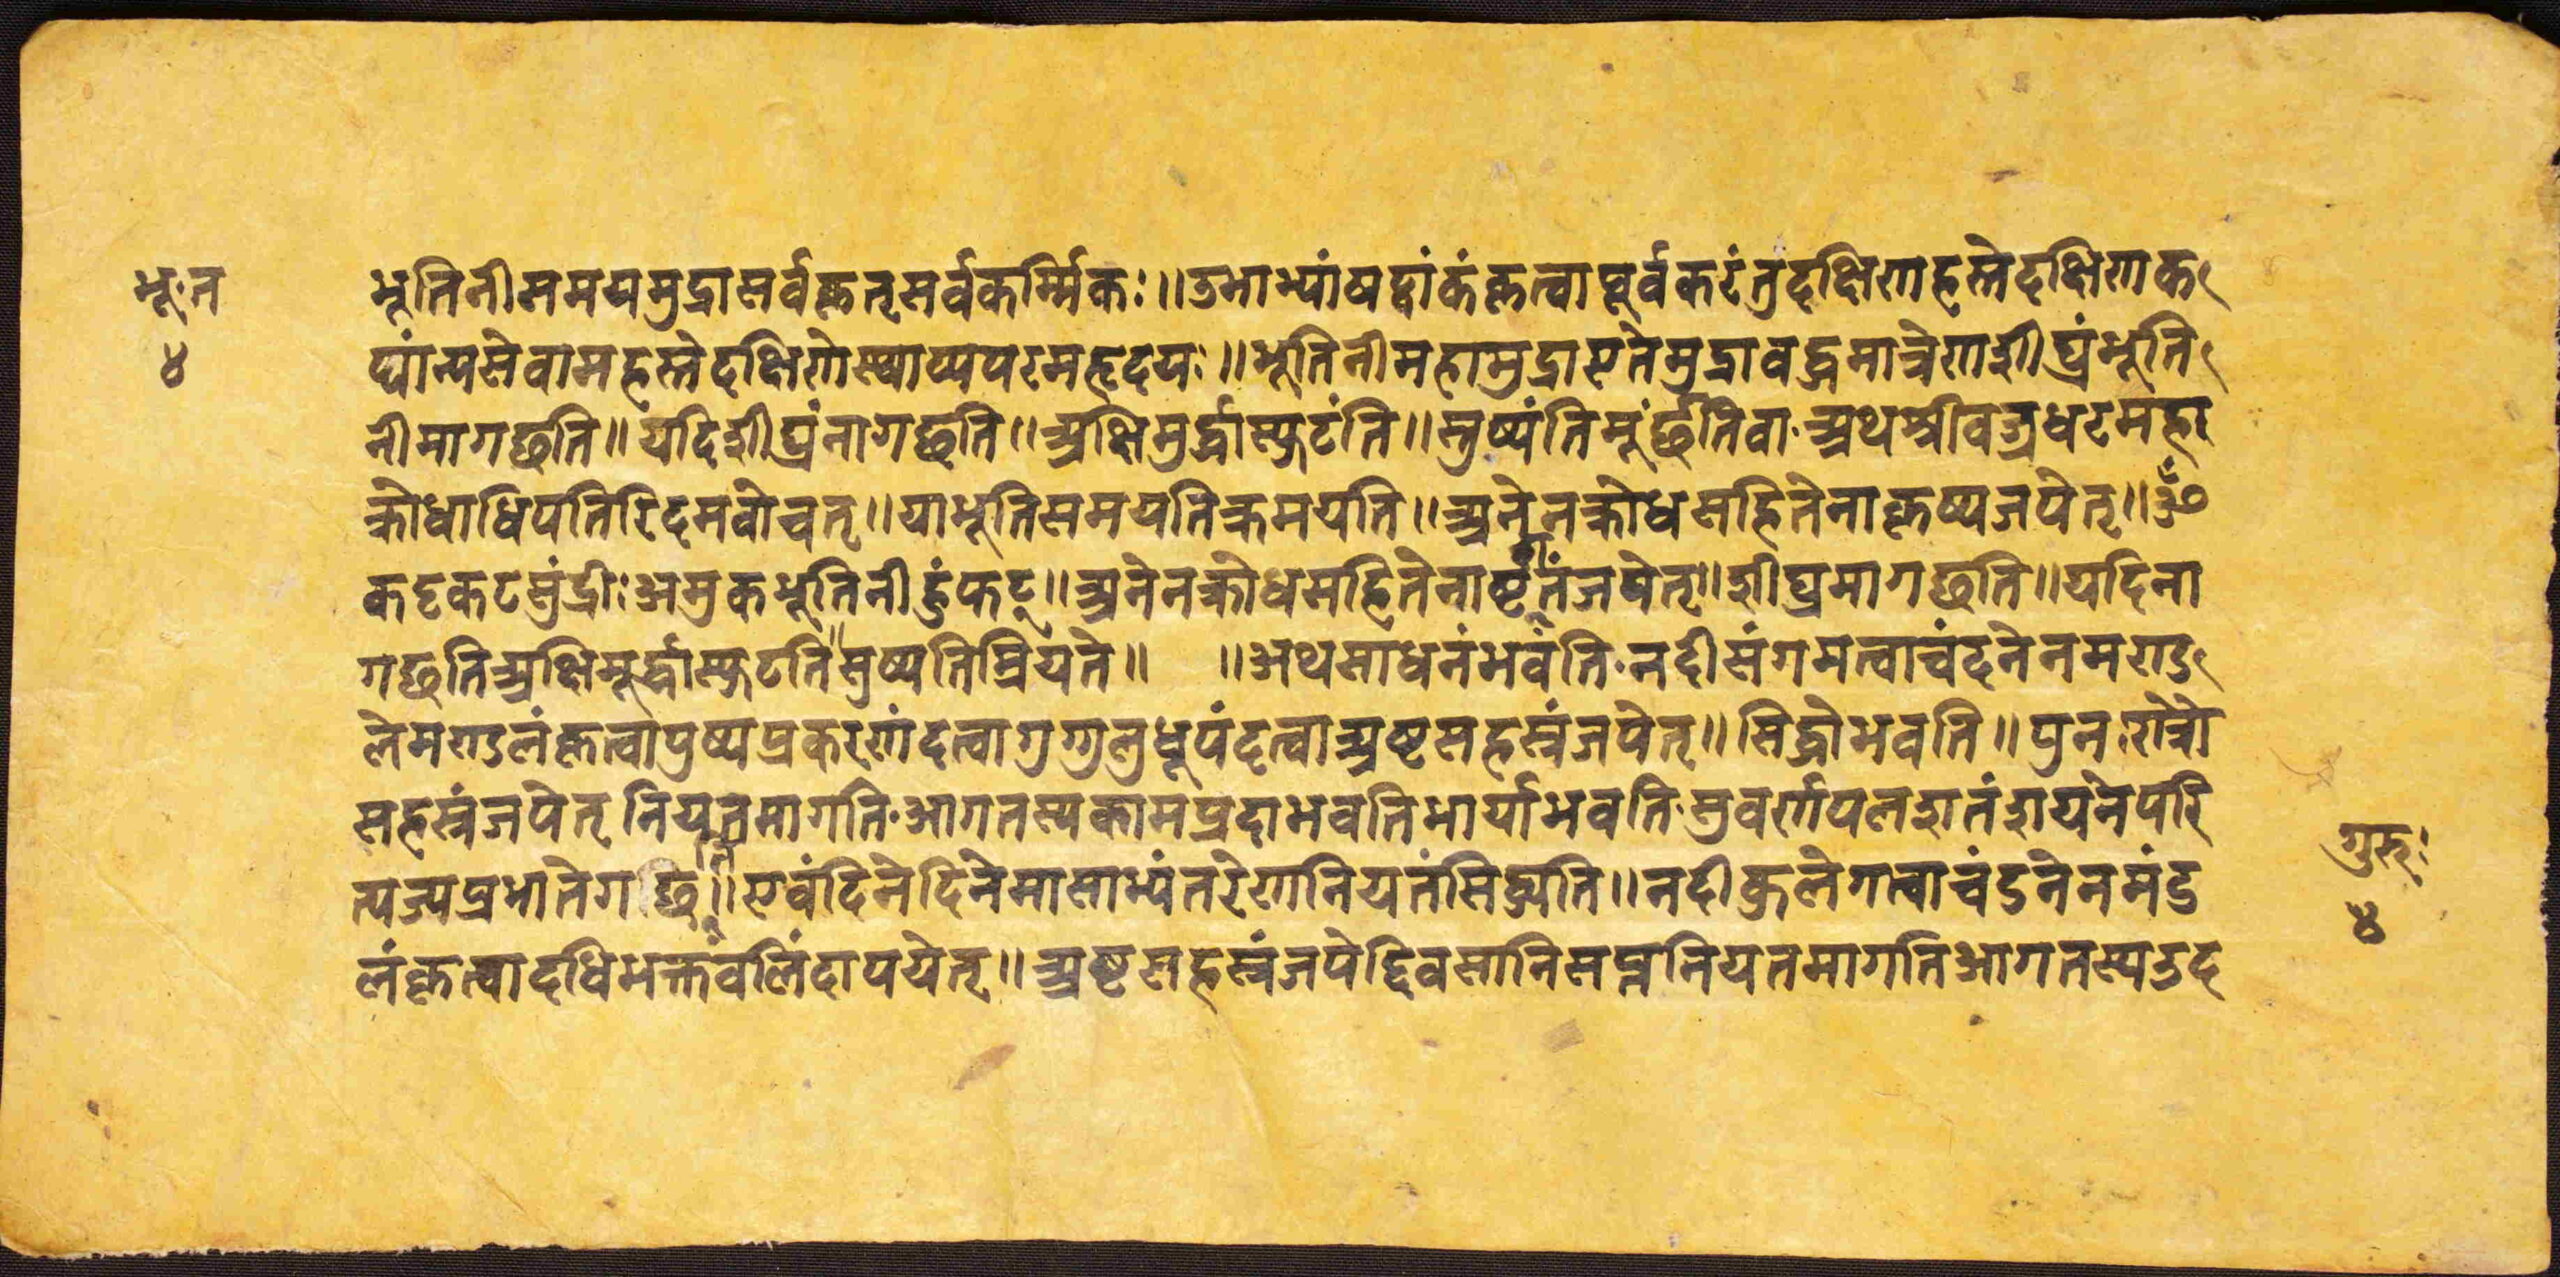 भू॰त
४
भूतिनीसमयमुद्रासर्वछतृसर्वकर्म्मिकः॥उभाभ्यांषद्वांकंकृत्वापूर्वकरंतुदक्षिणहस्तेदक्षिणक
र्घांन्यसेवामहस्तेदक्षिणेस्थाप्यपरमहृदयः॥भूतिनीमहामुद्राएतेमुद्रावद्धमात्रेणशीघ्रंभूति
नीमागछति॥यदिशीघ्रंनागछति॥अक्षिमुर्द्धास्फुटंति॥स्तुष्यंतिमूर्छंतिवा॰अथश्रीवज्रधरमहा
क्रोधाधिपतिरिदमवोचत्॥याभूतिसमयतिक्रमयति॥अनेनक्रोधसहितेनाकृष्यजपेत्॥ॐ
कट्टकटस्रुंद्रीःअमुकभूतिनीहुंफट्॥अनेनक्रोधसहितेनार्ष्टतंजपेत्॥शीघ्रमागछति॥यदिना
गछतिअक्षिमूर्द्धास्फुटति॥सुष्यतिम्रियते॥ ॥अथसाधनंभवंति॰नदीसंगमत्वाचंदनेनमण्ड
लेमण्डलंकृत्वापुष्पप्रकरणंदत्वागुगुलुधूपंदत्वाअष्टसहस्रंजपेत्॥सिद्धोभवति॥पुनःरात्रो
सहस्रंजपेत्नियतमागति॰आगतस्यकामप्रदाभवतिभार्याभवति॰सुवर्णपलशतंशयनेपरि
त्यज्यप्रभातेगछति॥एवंदिनेदिनेमासाभ्यंतरेणनियतंसिद्ध्यति॥नदीकुलेगत्वाचंडनेनमंडु
लंकृत्वादधिभक्तंवलिंदापयेत्॥अष्टसहस्रंजपेद्दिवसानिसप्तनियतमागतिआगतस्यउद
गुरुः
४